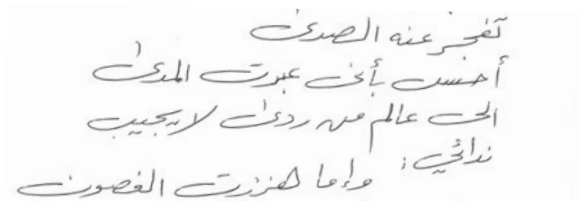 تفجر عنه الصدى
أحس بأنى عبرت المدى
الى عالم من ردى لا يجيب
ندائي؛
وإما هززت الغصون